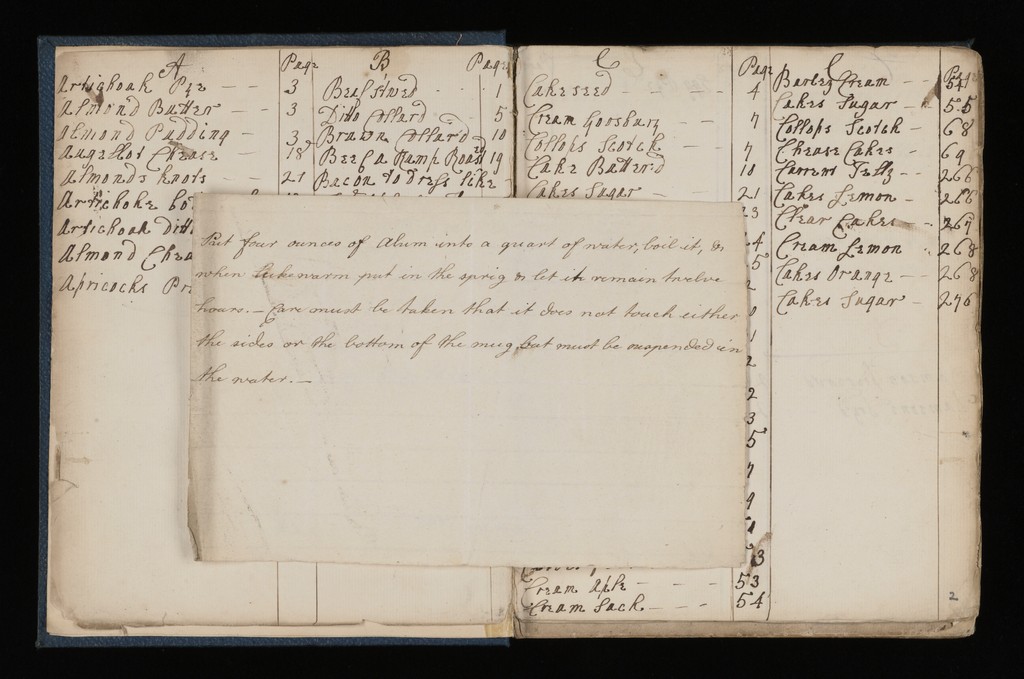 A Page
Artichoak Pye - - 3
Almond Butter - - 3
Almond Pudding - 3
Chease - - 18
Almonds Knots - - 21
Artichoke
Artichoak
Almond
Apricocks
B Page
Beaf 1
Ditto Collard - - 5
Brawn Collar'd 10
Beef a Rump Roast 19
Bacon to dress like -
C Page
Cake seed - - 4
Cream Goosbury 7
Collops Scotch - 7
Cake Butterd 10
Cakes Sugar - - 21
23
Cream Aple - - - 53
Cream Sack - - - 54
C Page
Barley Cream - 54
Cakes Sugar - - 55
Collops Scotch - 68
Chease Cakes - 69
266
Cakes Lemon - 266
Clear Cakes - - 267
Cream Lemon 268
Cakes Orange - - 268
Cakes Sugar - 276
2
Put four ounces of Alum into a quart of water, boil it, &
when Lukewarm put in the sprig & let it remain twelve
hours. - Care must be taken that it does not touch either
the sides or the bottom of the mug, but must be suspended in
the water. -